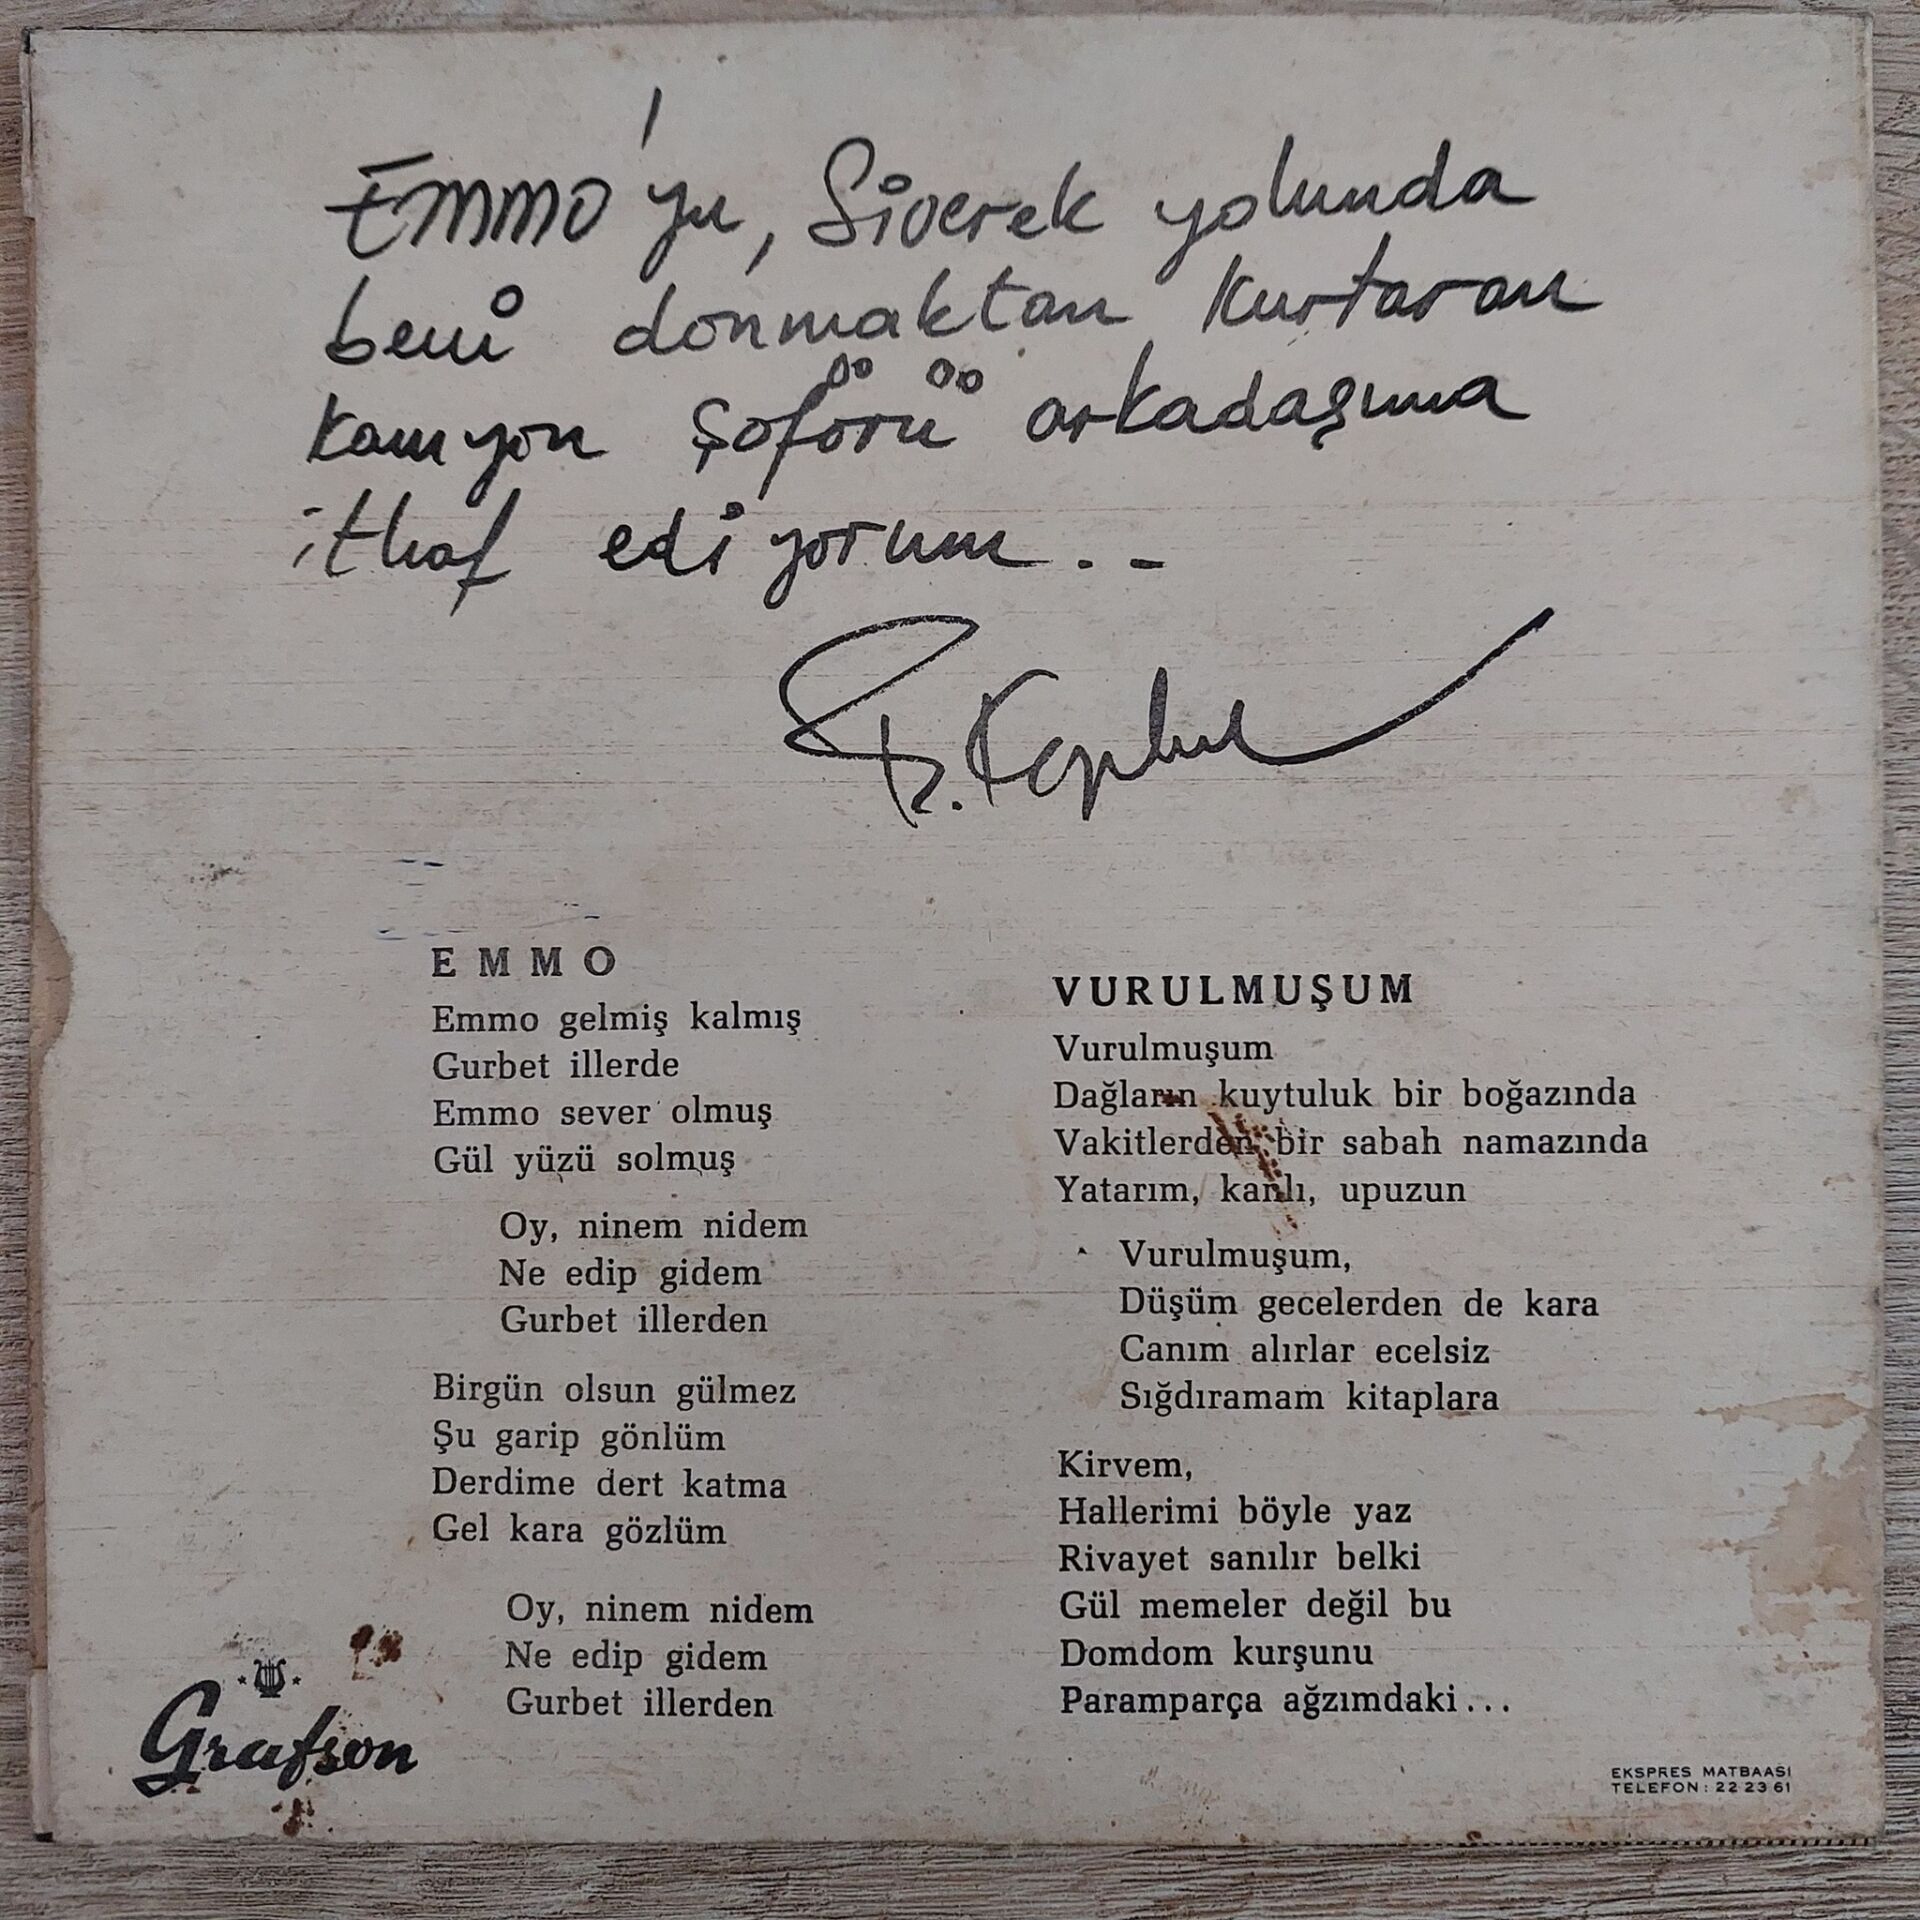 Emmo'yu, Siverek yolunda
beni donmaktan kurtaran
kamyon şoförü arkadaşıma
ithaf ediyorum..
R.
EMMO
Emmo gelmiş kalmış
Gurbet illerde
Emmo sever olmuş
Gül yüzü solmuş
Oy, ninem nidem
Ne edip gidem
Gurbet illerden
Birgün olsun gülmez
Şu garip gönlüm
Derdime dert katma
Gel kara gözlüm
Oy, ninem nidem
Ne edip gidem
Gurbet illerden
Grafson
VURULMUŞUM
Vurulmuşum
Dağların kuytuluk bir boğazında
Vakitlerden bir sabah namazında
Yatarım, kanlı, upuzun
Vurulmuşum,
Düşüm gecelerden de kara
Canım alırlar ecelsiz
Sığdıramam kitaplara
Kirvem,
Hallerimi böyle yaz
Rivayet sanılır belki
Gül memeler değil bu
Domdom kurşunu
Paramparça ağzımdaki...
EKSPRES MATBAASI
TELEFON: 22 23 61